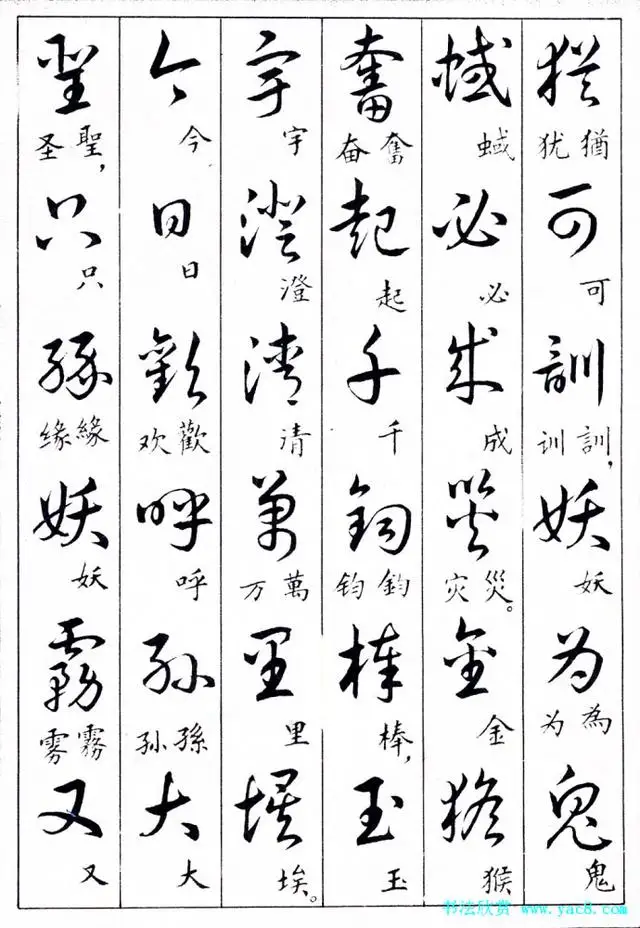 猶可訓妖為鬼
犹猶 可 训訓， 妖 为為 鬼
蜮必成災金猴
蜮 必 成 灾災。 金 猴
奮起千鈞棒玉
奋奮 起 千 钧鈞 棒， 玉
宇澄清萬里埃
宇 澄 清 万萬 里 埃。
今日歡呼孫大
今 日 欢歡 呼 孙孫 大
聖只緣妖霧又
圣聖， 只 缘緣 妖 雾霧 又
书法欣赏 www.yac8.com